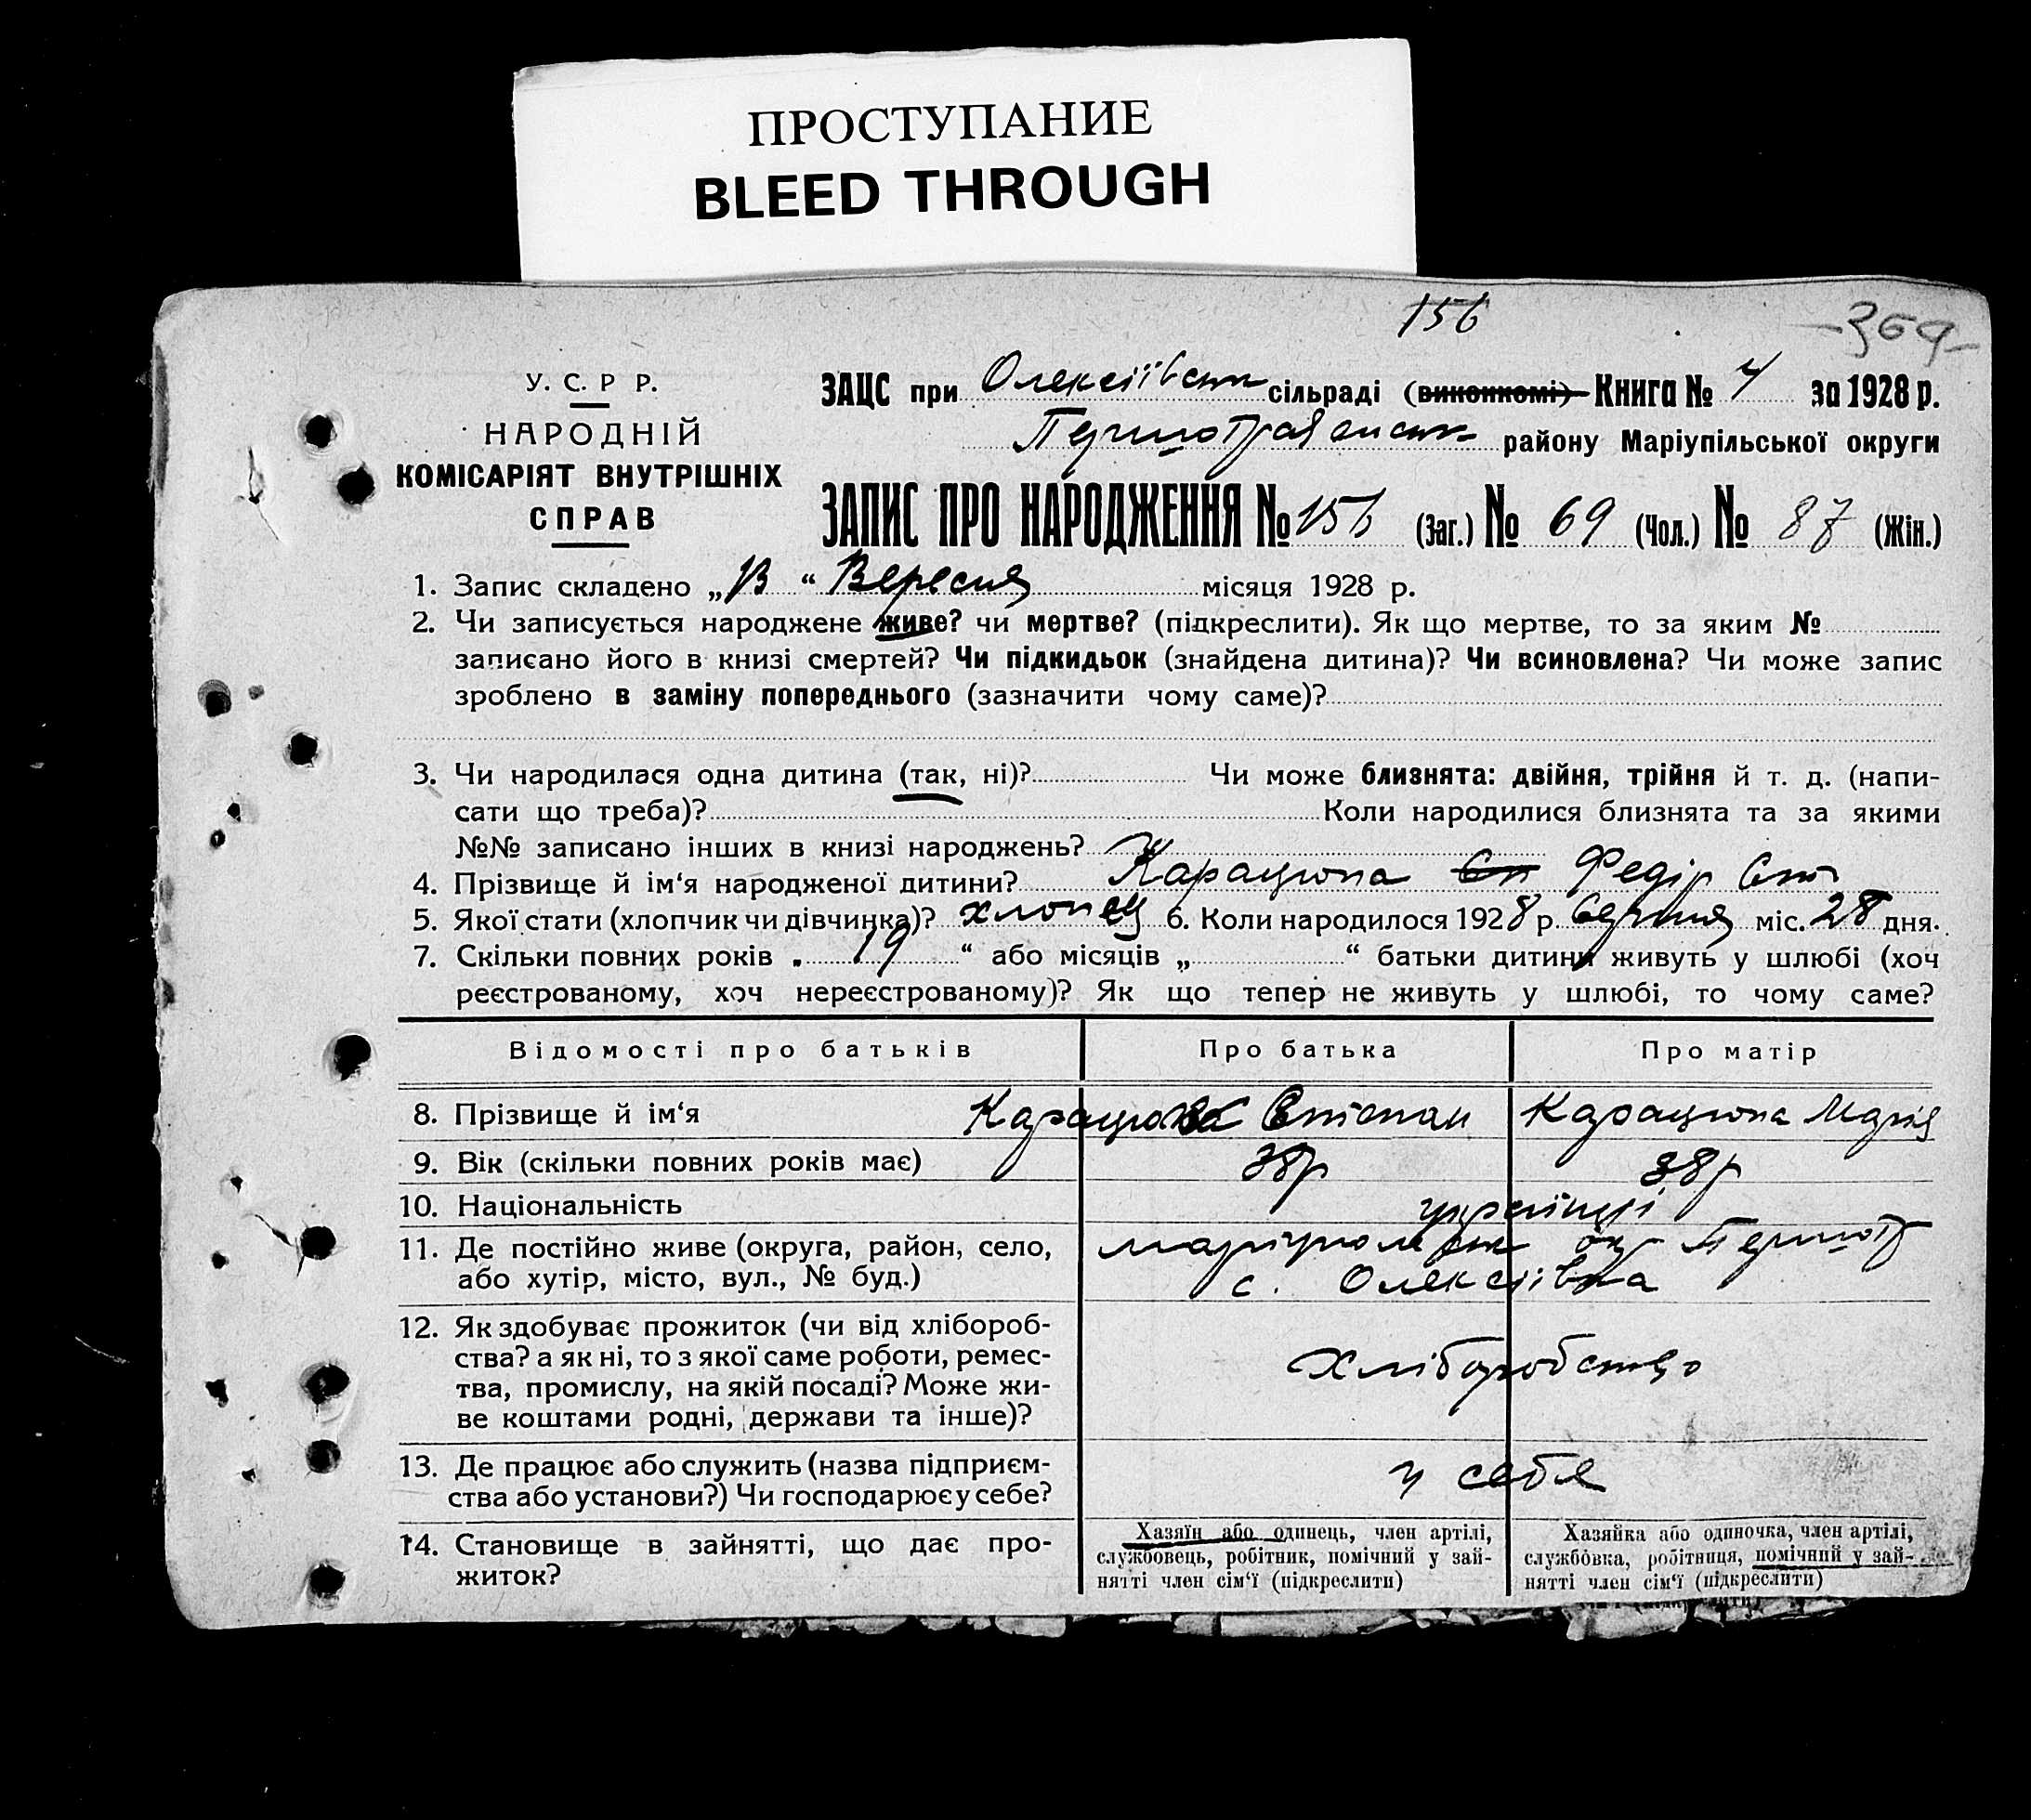 ПРОСТУПАНИЕ
BLEED THROUGH
156
-369-
У. С. Р Р.
НАРОДНІЙ
КОМІСАРІЯТ ВНУТРІШНІХ
СПРАВ
ЗАЦС при Олексіївськ сільраді (виконкомі) Книга № за 1928 р.
району Маріупільської округи
ЗАПИС ПРО НАРОДЖЕННЯ № 156 (Заг.) № 69 (Чол.) № 87 (Жін.)
1. Запис складено „ “ Вересня місяця 1928 р.
2. Чи записується народжене живе? чи мертве? (підкреслити). Як що мертве, то за яким №
записано його в книзі смертей? Чи підкидьок (знайдена дитина)? Чи всиновлена? Чи може запис
зроблено в заміну попереднього (зазначити чому саме)?
3. Чи народилася одна дитина (так, ні)? Чи може близнята: двійня, трійня й т. д. (напи-
сати що треба)? Коли народилися близнята та за якими
№№ записано інших в книзі народжень?
4. Прізвище й ім‘я народженої дитини? Карацюпа Ст Федір Ст
5. Якої стати (хлопчик чи дівчинка)? хлопец 6. Коли народилося 1928 р. Серпня міс. 28 дня.
7. Скільки повних років „ 19 “ або місяців „ “ батьки дитини живуть у шлюбі (хоч
реєстрованому, хоч нереєстрованому)? Як що тепер не живуть у шлюбі, то чому саме?
Відомості про батьків Про батька Про матір
8. Прізвище й ім‘я Карацюпа Степан Карацюпа Марія
9. Вік (скільки повних років має) 38р 38р
10. Національність українці
11. Де постійно живе (округа, район, село, окр
або хутір, місто, вул., № буд.) с. Олексіївка
12. Як здобуває прожиток (чи від хлібороб-
ства? а як ні, то з якої саме роботи, ремес- Хліборобство
тва, промислу, на якій посаді? Може жи-
ве коштами родні, держави та інше)?
13. Де працює або служить (назва підприєм- у себя
ства або установи?) Чи господарює у себе?
14. Становище в зайнятті, що дає про-
житок?
Хазяїн або одинець, член артілі,
службовець, робітник, помічний у зай-
нятті член сім‘ї (підкреслити)
Хазяйка або одиночка, член артілі,
службовка, робітниця, помічний у зай-
нятті член сім‘ї (підкреслити)